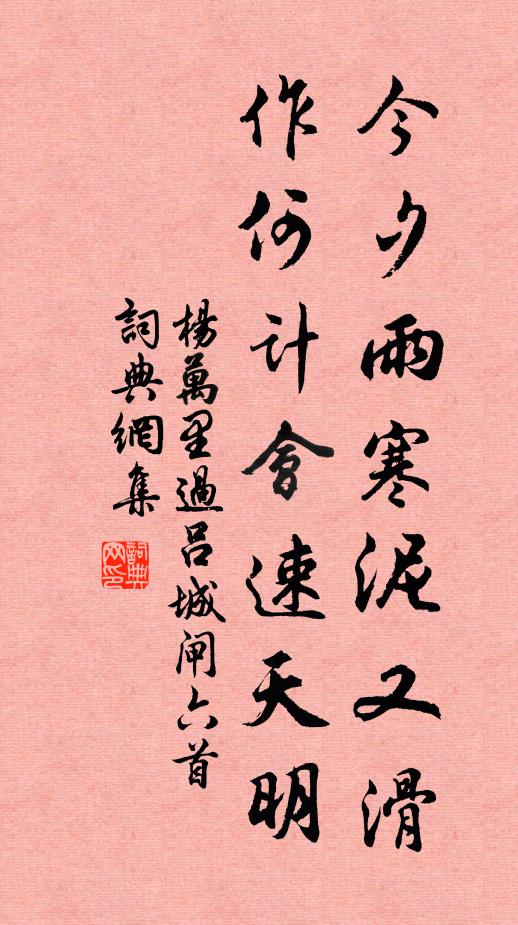 今夕雨寒泥又滑
作何計會速天明
楊萬里過呂城閘六首
詞典網集
詞典網印